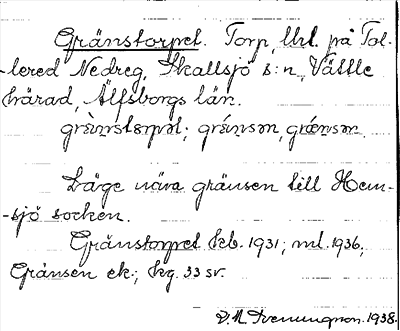 Gränstorpet. Torp, lht. på Tol-
-lered Nedreg, Skallsjö s:n, Vättle
härad, Älfsborgs län.
grèn̩storpət; grénsən, grǽnsən
Läge nära gränsen till Hem-
-sjö socken.
Gränstorpet kb. 1931; ml. 1936,
Gränsen ek.; kg. 33 sv.
1938.